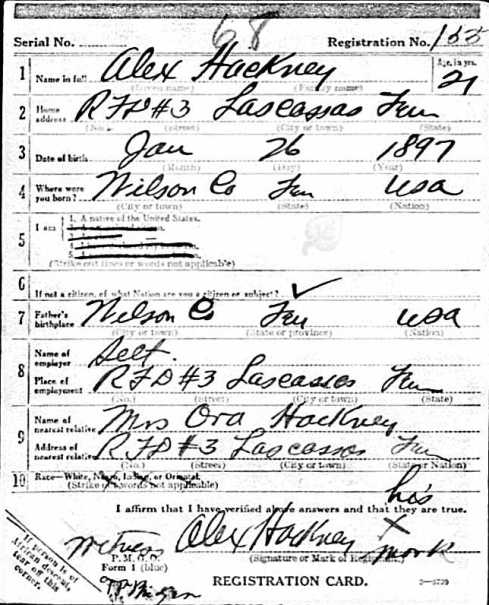 68
Serial No. Registration No. 153
1 Name in full Alex Hackney Age, in yrs. 21
(Given name) (Family name)
2 Home address RFD #3 Lascassas Ten
(No.) (Street) (City or town) (State)
3 Date of birth Jan 26 1897
(Month) (Day) (Year)
4 Where were you born? Wilson Co Ten USA
(City or town) (State) (Nation)
5 I am 1. A native of the United States.
(Strike out lines or words not applicable)
6 If not a citizen, of what Nation are you a citizen or subject?
7 Father's birthplace Wilson Co Ten USA
(City or town) (State or province) (Nation)
8 Name of employer Self.
Place of employment RFD #3 Lascasses Ten
(No.) (Street) (City or town) (State)
9 Name of nearest relative Mrs Ora Hackney
Address of nearest relative RFD #3 Lascassos Ten
(No.) (Street) (City or town) (State or Nation)
10 Race—White, Negro, Indian, or Oriental.
(Strike out words not applicable)
his
I affirm that I have verified above answers and that they are true.
Witness Alex Hackney X mark
P. M. G. O. (Signature or Mark of Registrant)
Form 1 (blue) REGISTRATION CARD.
If person is of African descent, tear off this corner.